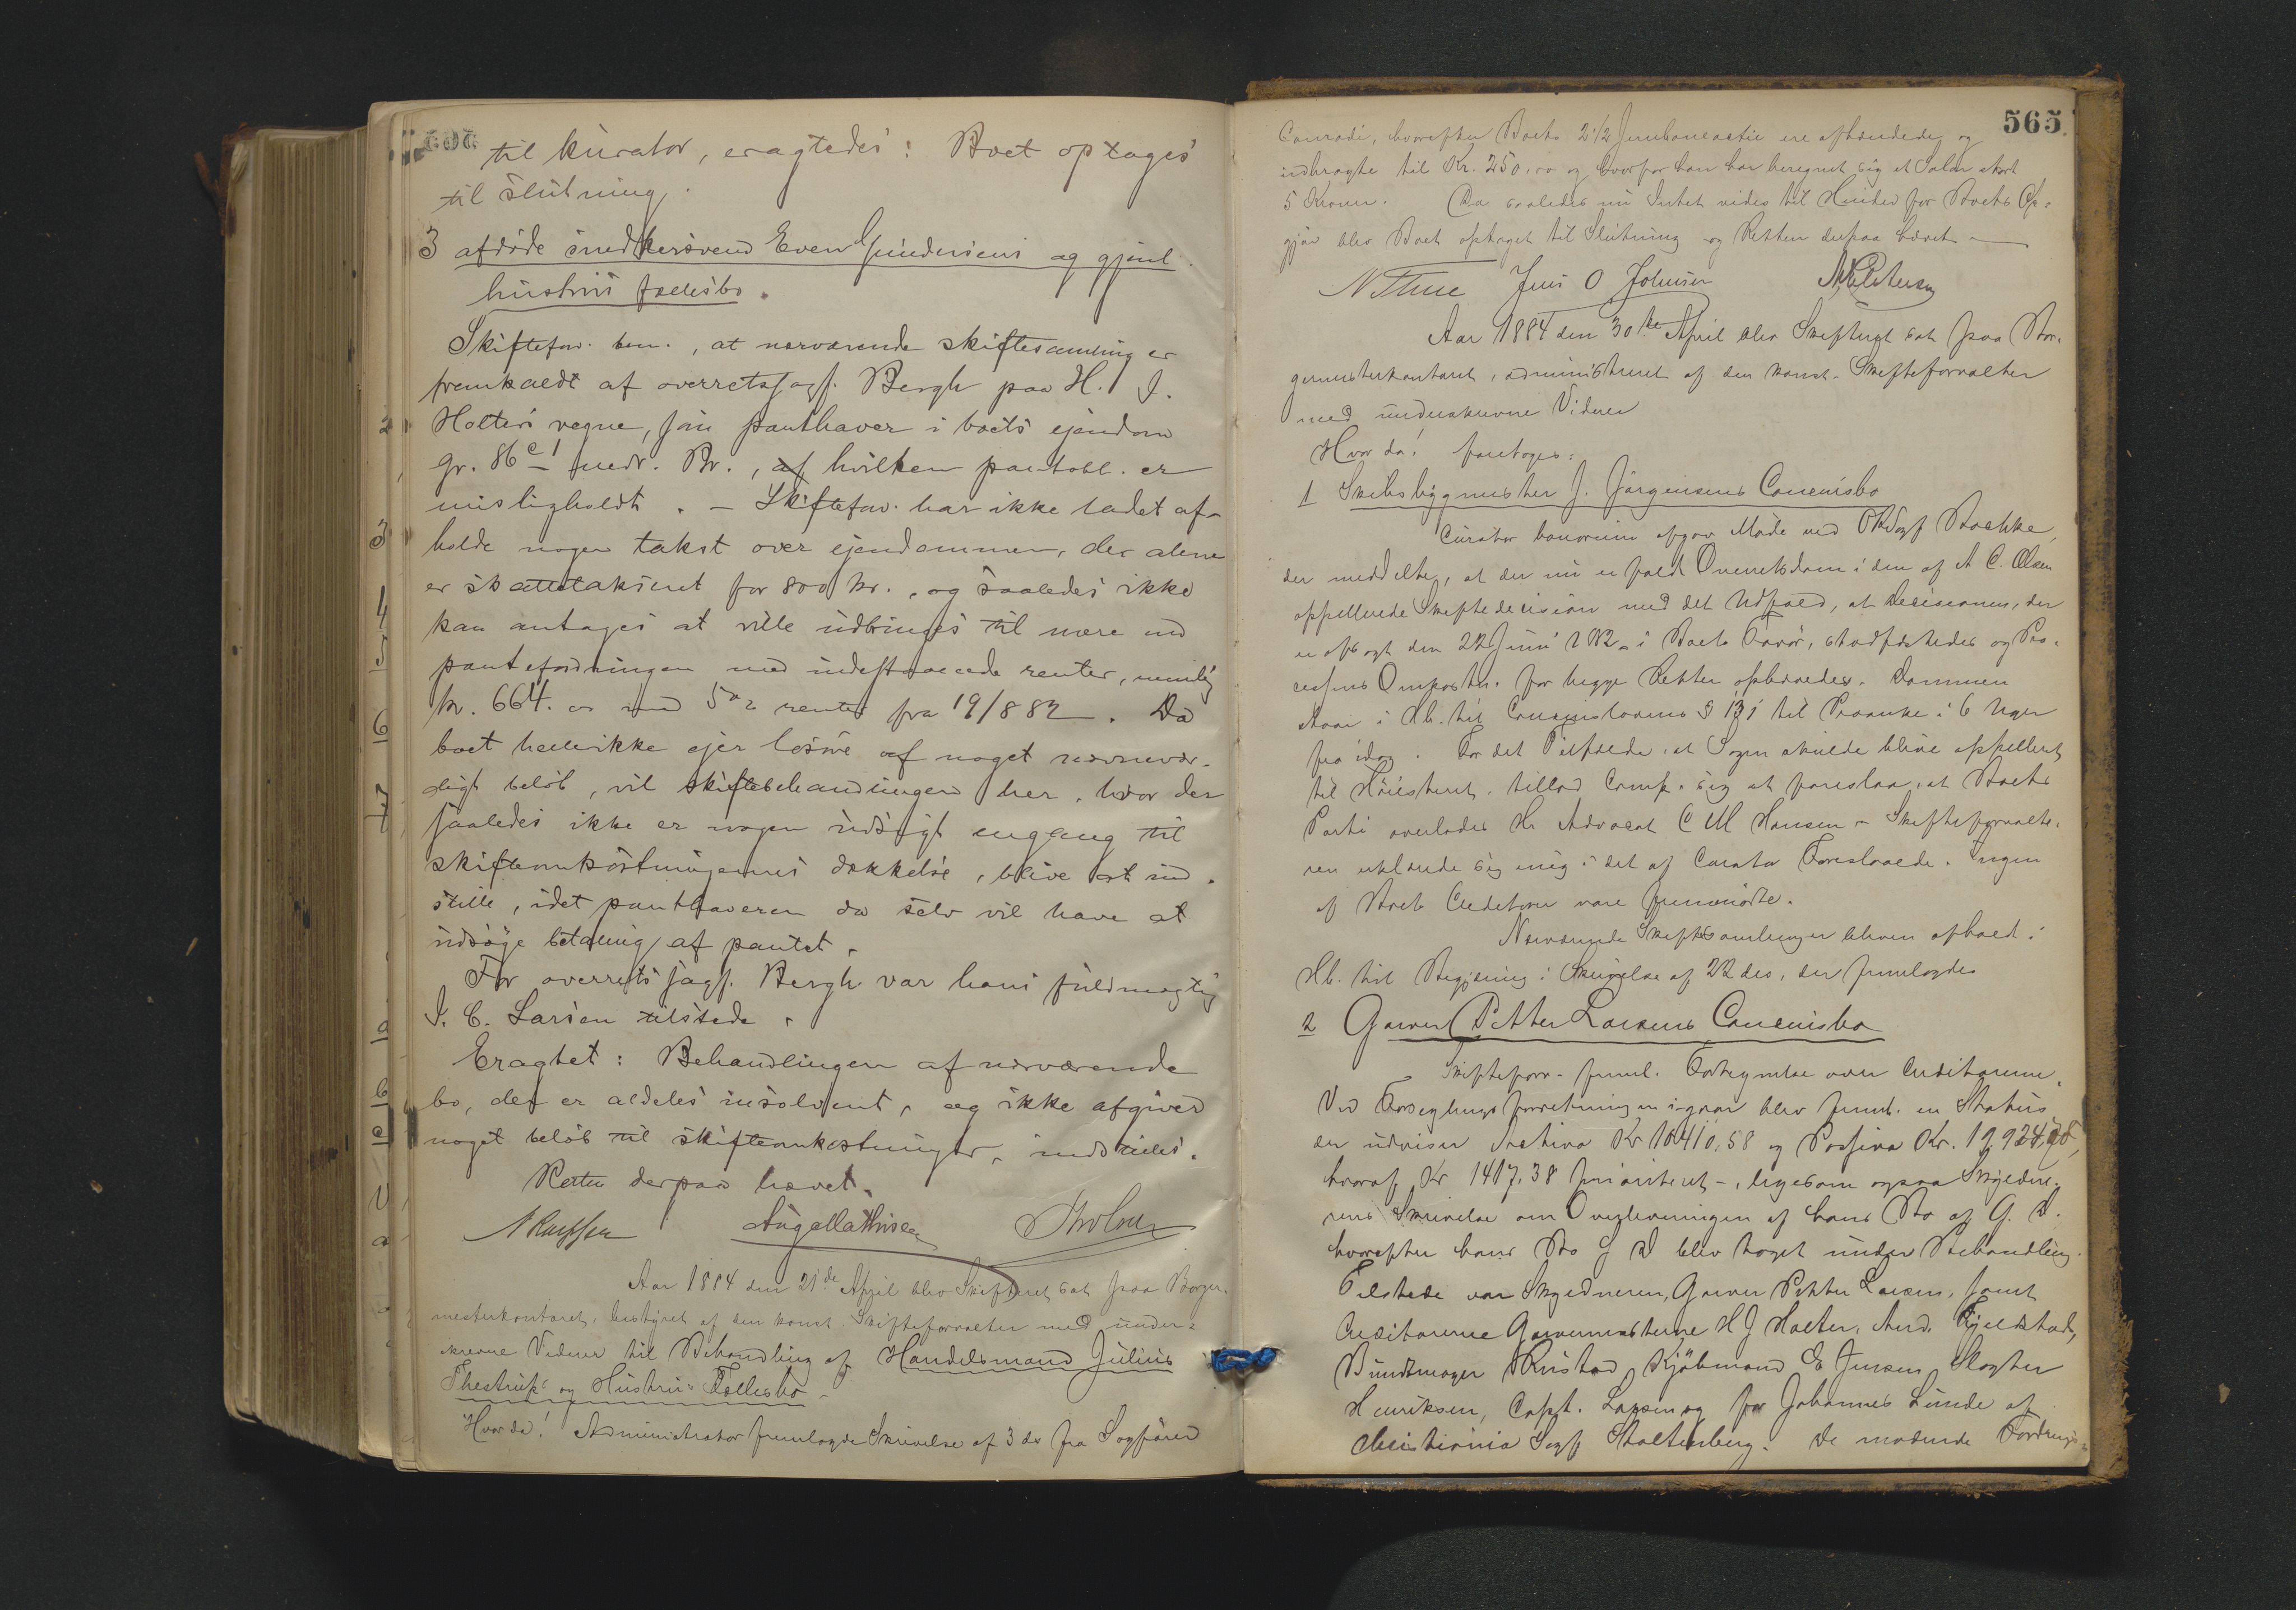 til kurator, eragtedes: Boet optages
til slutning.
3 afdøde snedkersvend Even Gundersens og gjenl.
hustrus fællesbo.
Skiftefov. bem., at nærværende skiftesamling er
fremkaldt af overretssagf. Bergh paa H. J.
Holters vegne, som panthaver i boets ejendom
gr. 86 c 1 nedr. Br., af hvilken pantobl. er
misligholdt. – Skiftefov. har ikke ladet af-
holde nogen takst over ejendommen, der alene
er skattetakseret for 800 kr., og saaledes ikke
kan antages at ville udbringes til mere end
pantefordringen med indestaaende renter, nemlig
kr. 664. med renter fra 19/8 82. Da
boet hellerikke ejer løsøre af noget nævnevær-
digt beløb, vil skiftebehandlingen her, hvor der
saaledes ikke er nogen udsigt engang til
skifteomkostningernes dækkelse, blive at ind-
stille, idet panthaveren da selv vil have at
udsøge betaling af pantet.
For overretssagf. Bergh var hans fuldmægtig
J. C. Larsen tilstede.
Eragtet: Behandlingen af nærværende
bo, der er aldeles insolvent, og ikke afgiver
noget beløb til skifteomkostninger, indstilles.
Retten derpaa hævet.
Aug. Mathisen
Aar 1884 den 21de April blev Skifteret sat paa Borger-
mesterkontoret, bestyret af den konst. Skifteforvalter med under-
skrevne Vidner til Behandling af Handelsmand Julius
Thestrups og Hustrus Fællesbo –
Hvorda! Administrator fremlagde Skrivelse af 3 ds fra Sagfører
565
Conradi, hvorefter Boets 2 1/2 ere afhændede og
indbragte til Kr. 250.00 og hvorfor han har beregnet sig et Salær stort
5 Kroner. Da saaledes nu Intet vides til Hinder for Boets Op-
gjør blev Boet optaget til Slutning og Retten derpaa hævet –
N Thue Jens O Johnsen
Aar 1884 den 30te April blev Skifteret sat paa Bor-
germesterkontoret, administreret af den konst. Skifteforvalter
med underskrevne Vidner
Hvor da! foretoges:
1 Skibsbygmester J. Jörgensens Concursbo
Curator bonorum afgav Møde ved ORSagf Baehke,
der meddelte, at der nu er faldt Overretsdom i den af A C. Olsen
appellerede Skiftedecision med det Udfald, at Decisionen, der
er afsagt den 22 Juni i Boets Favør, stadfæstedes og Pro-
cessens Omkostn. for begge Retter ophævedes. Dommen
staar i Hh. til Concurslovens § 131 til Paaanke i 6 Uger
fra idag. For det Tilfælde, at Sagen skulde blive appelleret
til Høiesteret, tillod Comp. sig at foreslaa, at Boets
Parti overlades Hr Advocat C M Hansen – Skifteforvalte-
ren erklærede sig enig i det af Curator Foreslaaede. Ingen
af Boets Creditorer vare fremmødte.
Nærværende Skiftesamlinger bleven afholdt i
Hh. til Begjæring i Skrivelse af 22 ds, der fremlagdes
2 Garver Petter Larsens Concursbo
Skifteforv. freml. Fortegnelse over Creditorerne.
Ved Forseglingsforretningen igaar blev freml. en Status,
der udviser Activa Kr 10410,58 og Passiva Kr. 19,924,
hvoraf Kr 1417,38 prioriteret –, ligesom ogsaa Skyldne-
rens Skrivelse om Overleveringen af hans Bo af G. D.
hvorefter hans Bo G D blev taget under Behandling.
Tilstede var Skyldneren, Garver Petter Larsen, samt
Creditorerne Garvermesterne H J Holter, And. Fjeldstad,
Bundtmager Rustad, Kjøbmand E Jensen, Slagter
Henriksen, Capt. Larsen og for Johannes Lunde af
Christiania Sagf Stoltenberg. De mødende Fordrings-